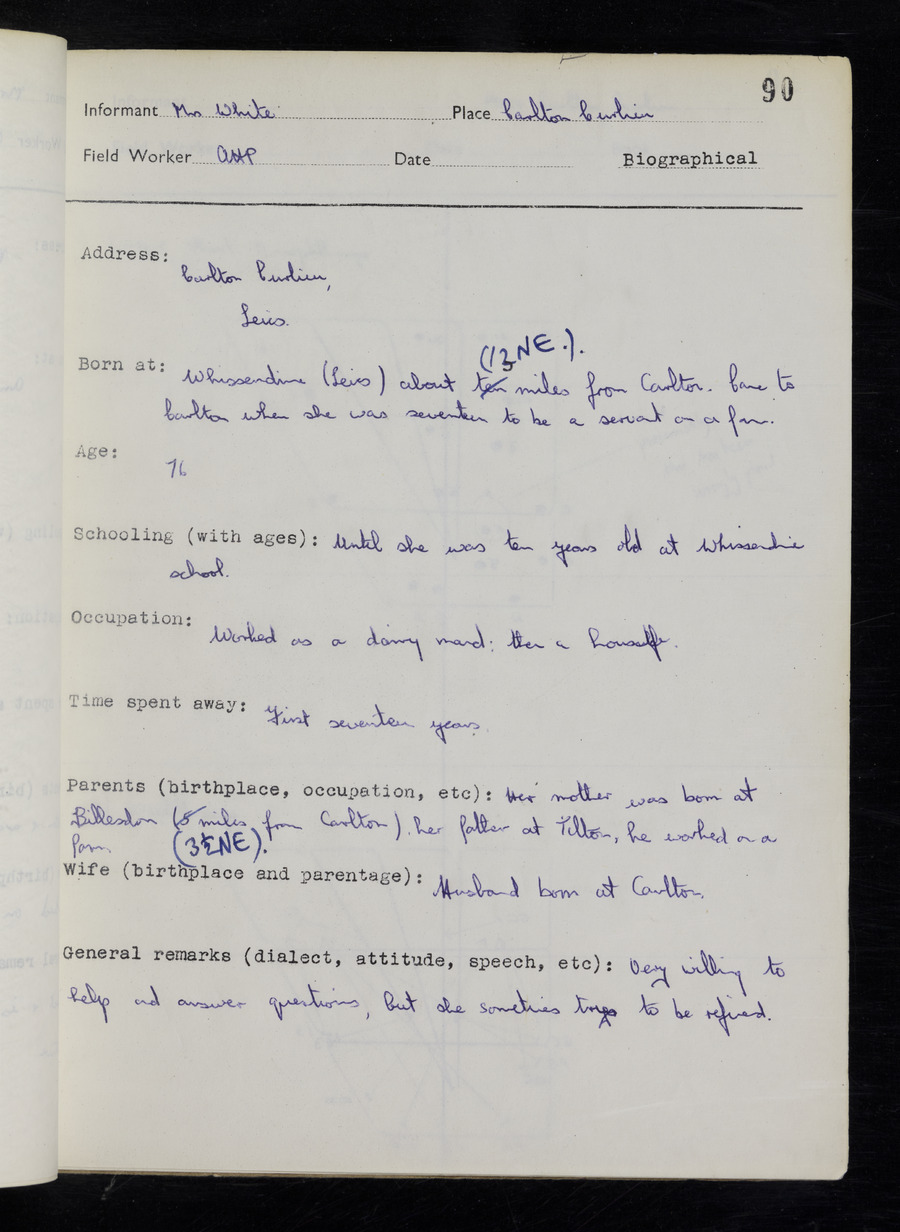 90
Informant Mrs White Place Carlton Curlieu
Field Worker AHP Date Biographical
Address:
Carlton Curlieu,
Leics.
(13 NE.).
Born at: Whissendine (Leics) about ten miles from Carlton. Came to
Carlton when she was seventeen to be a servant on a farm.
Age:
76
Schooling (with ages): Until she was ten years old at Whissendine
school.
Occupation:
Worked as a dairy maid; then a housewife.
Time spent away: First seventeen years.
Parents (birthplace, occupation, etc): Her mother was born at
Billesdon (5 miles from Carlton). her father at Tilton, he worked on a
farm (3½NE).
Wife (birthplace and parentage): Husband born at Carlton.
General remarks (dialect, attitude, speech, etc): Very willing to
help and answer questions, but she sometimes to be refined.